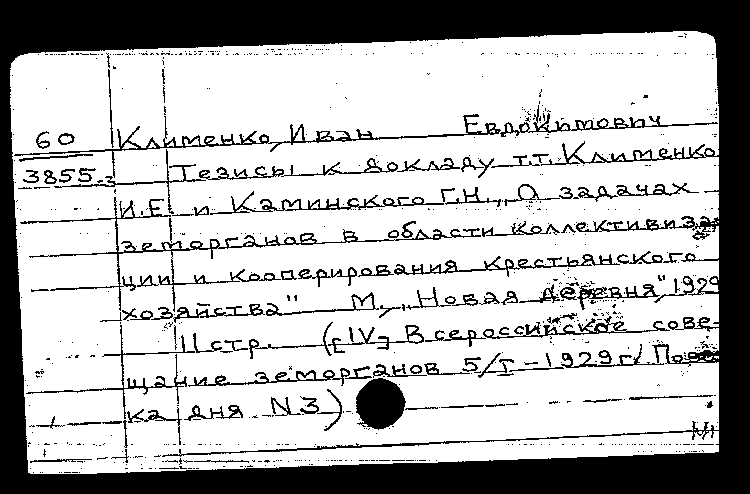 60 Клименко, Иван Евдокимович
3855.3 Тезисы к докладу т.т. Клименко
И.Е. и Каминского Г.Н. „О задачах
земорганов в области коллективиза-
ции и кооперирования крестьянского
хозяйства" М., „Новая деревня", 1929
11 стр. ([IV] Всероссийское сове-
щание земорганов 5/I – 1929 г.
ка дня N3)